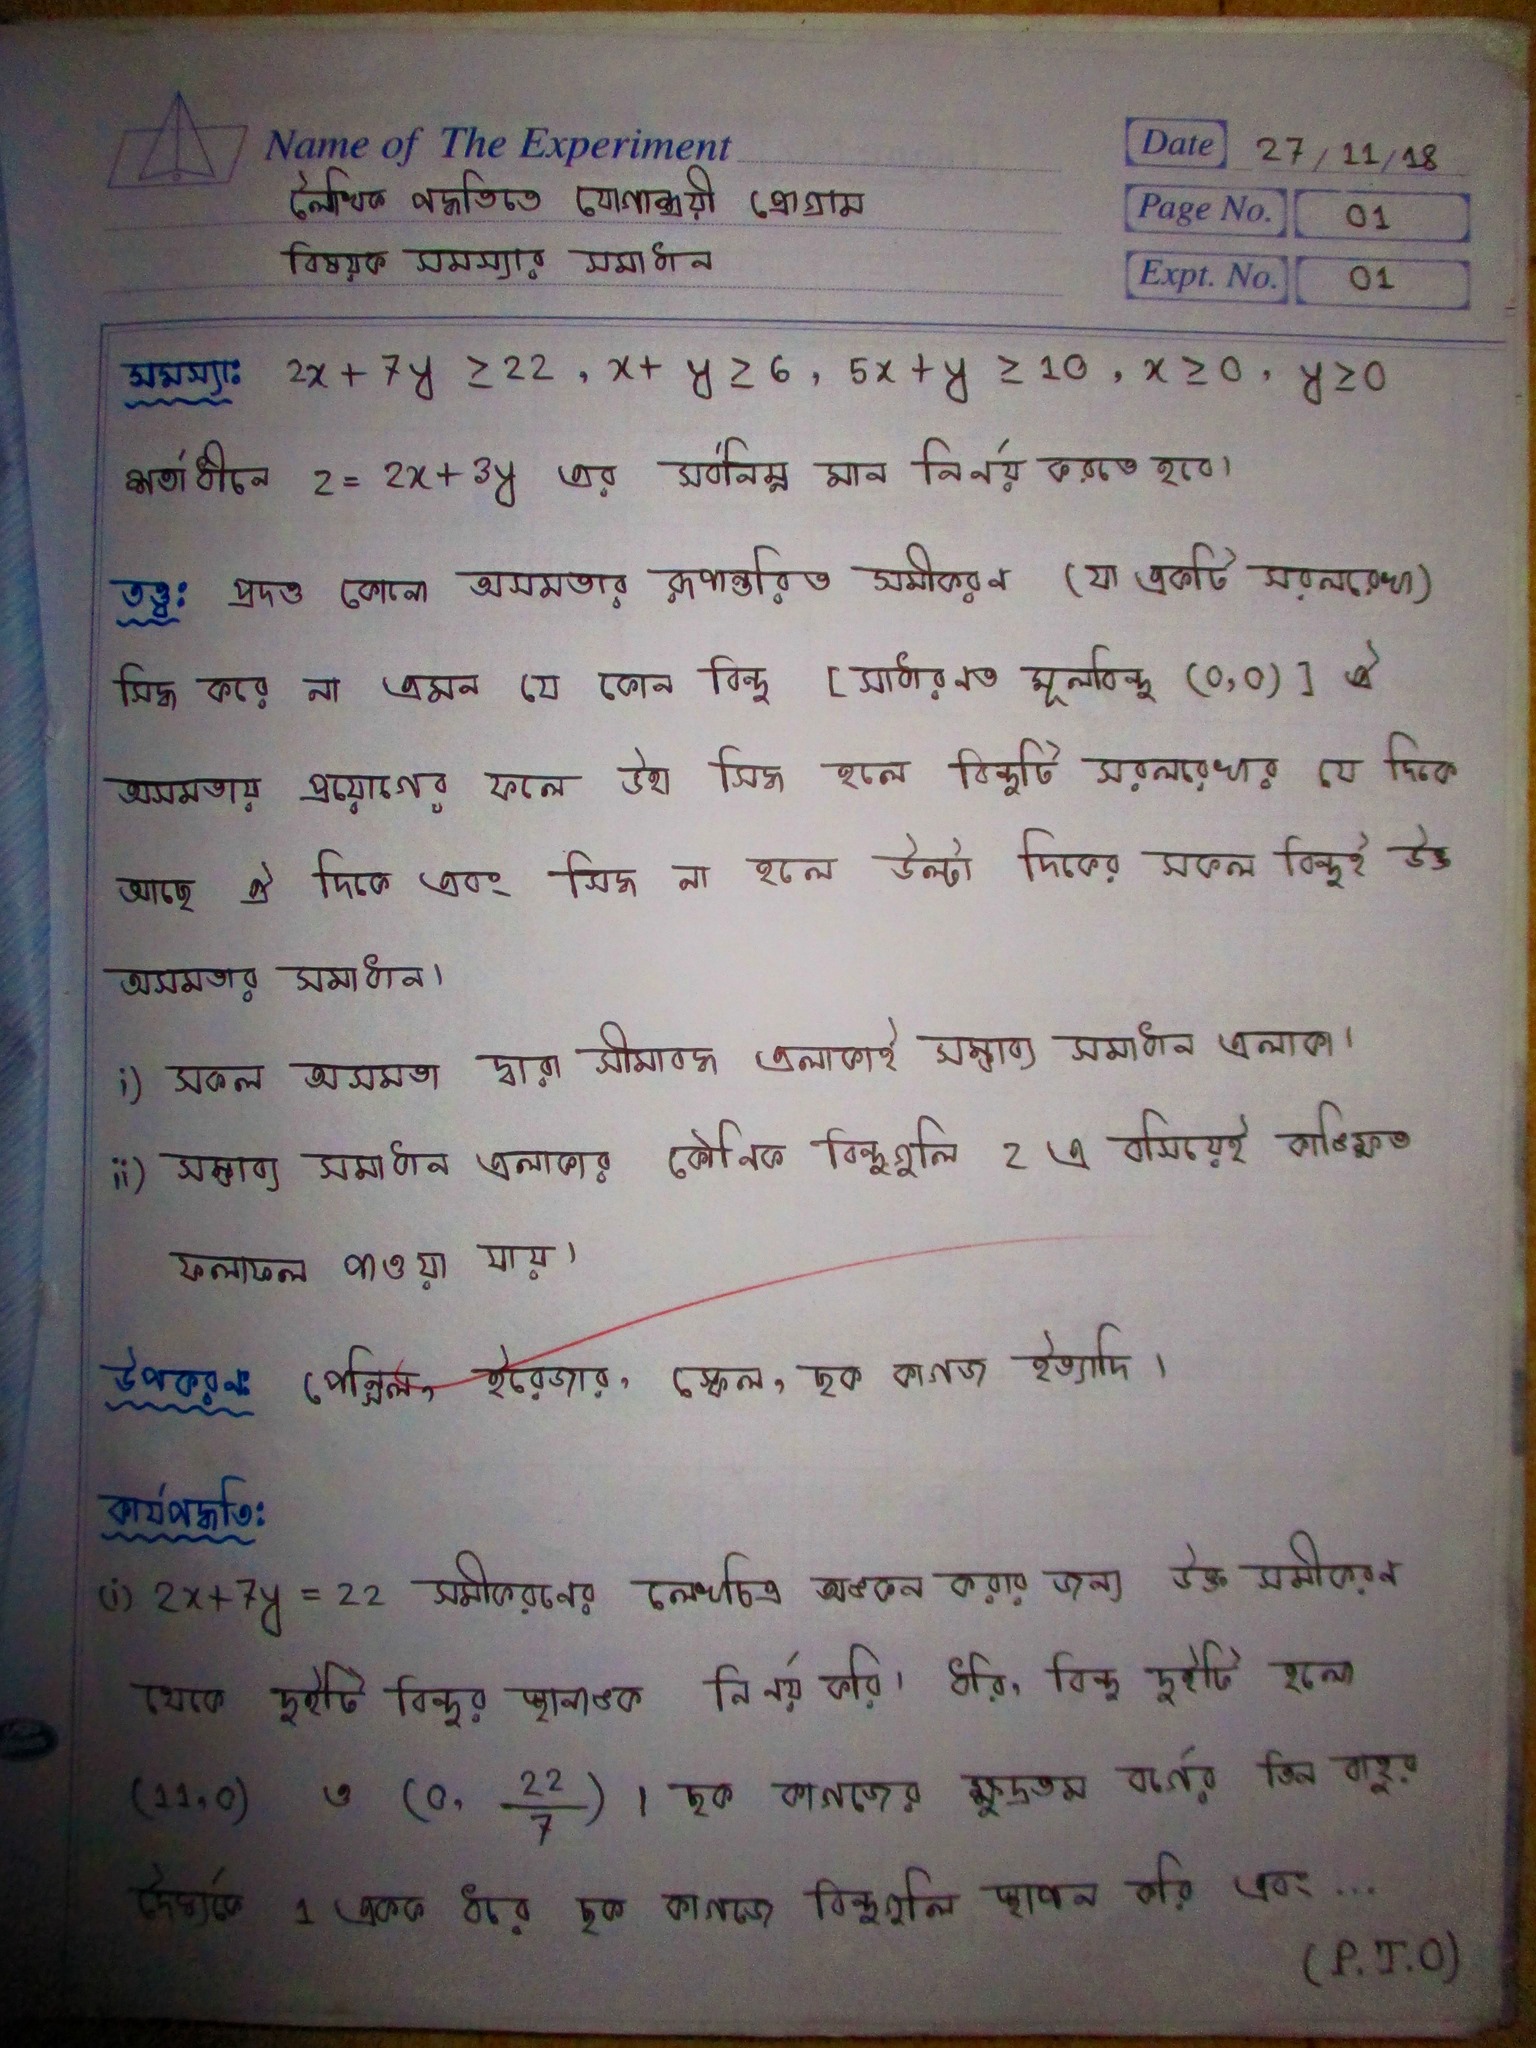 Name of The Experiment
Date 27/11/18
লৈখিক পদ্ধতিতে যোগাশ্রয়ী প্রোগ্রাম
Page No. 01
বিষয়ক সমস্যার সমাধান
Expt. No. 01
সমস্যাঃ 2x + 7y ≥ 22, x + y ≥ 6, 5x + y ≥ 10, x ≥ 0, y ≥ 0
শর্তাধীনে z = 2x + 3y এর সর্বনিম্ন মান নির্নয় করতে হবে।
তত্ত্বঃ প্রদত্ত কোনো অসমতার রূপান্তরিত সমীকরন (যা একটি সরলরেখা)
সিদ্ধ করে না এমন যে কোন বিন্দু [সাধারনত মূলবিন্দু (0,0)] ঐ
অসমতায় প্রয়োগের ফলে উহা সিদ্ধ হলে বিন্দুটি সরলরেখার যে দিকে
আছে ঐ দিকে এবং সিদ্ধ না হলে উল্টা দিকের সকল বিন্দুই উক্ত
অসমতার সমাধান।
i) সকল অসমতা দ্বারা সীমাবদ্ধ এলাকাই সম্ভাব্য সমাধান এলাকা।
ii) সম্ভাব্য সমাধান এলাকার কৌনিক বিন্দুগুলি z এ বসিয়েই কাঙিক্ষত
ফলাফল পাওয়া যায়।
উপকরনঃ পেন্সিল, ইরেজার, স্কেল, ছক কাগজ ইত্যাদি।
কার্যপদ্ধতিঃ
(i) 2x+7y = 22 সমীকরনের লেখচিত্র অঙকন করার জন্য উক্ত সমীকরন
থেকে দুইটি বিন্দুর স্থানাঙক নির্নয় করি। ধরি, বিন্দু দুইটি হলো
(11,0) ও (0, 22/7)। ছক কাগজের ক্ষুদ্রতম বর্গের তিন বাহুর
দৈর্ঘ্যকে 1 একক ধরে ছক কাগজে বিন্দুগুলি স্থাপন করি এবং ...
(P.T.O)